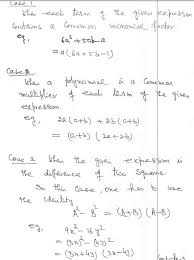 Case 1
When each term of the given expression
contains a common monomial factor
eg,
6a² + 5ab - a
= a (6a + 5b - 1)
Case 2
When a polynomial is a common
multiplier of each term of the given
expression
eg 2a (a+b) + 2b (a+b)
= (a+b) (2a+2b)
Case 3 When the given expression is
the difference of two squares.
In this case, one has to use
the identity
A² - B² = (A+B) (A-B)
eg, 9x² - 16y²
= (3x)² - (4y)²
= (3x+4y) (3x-4y)